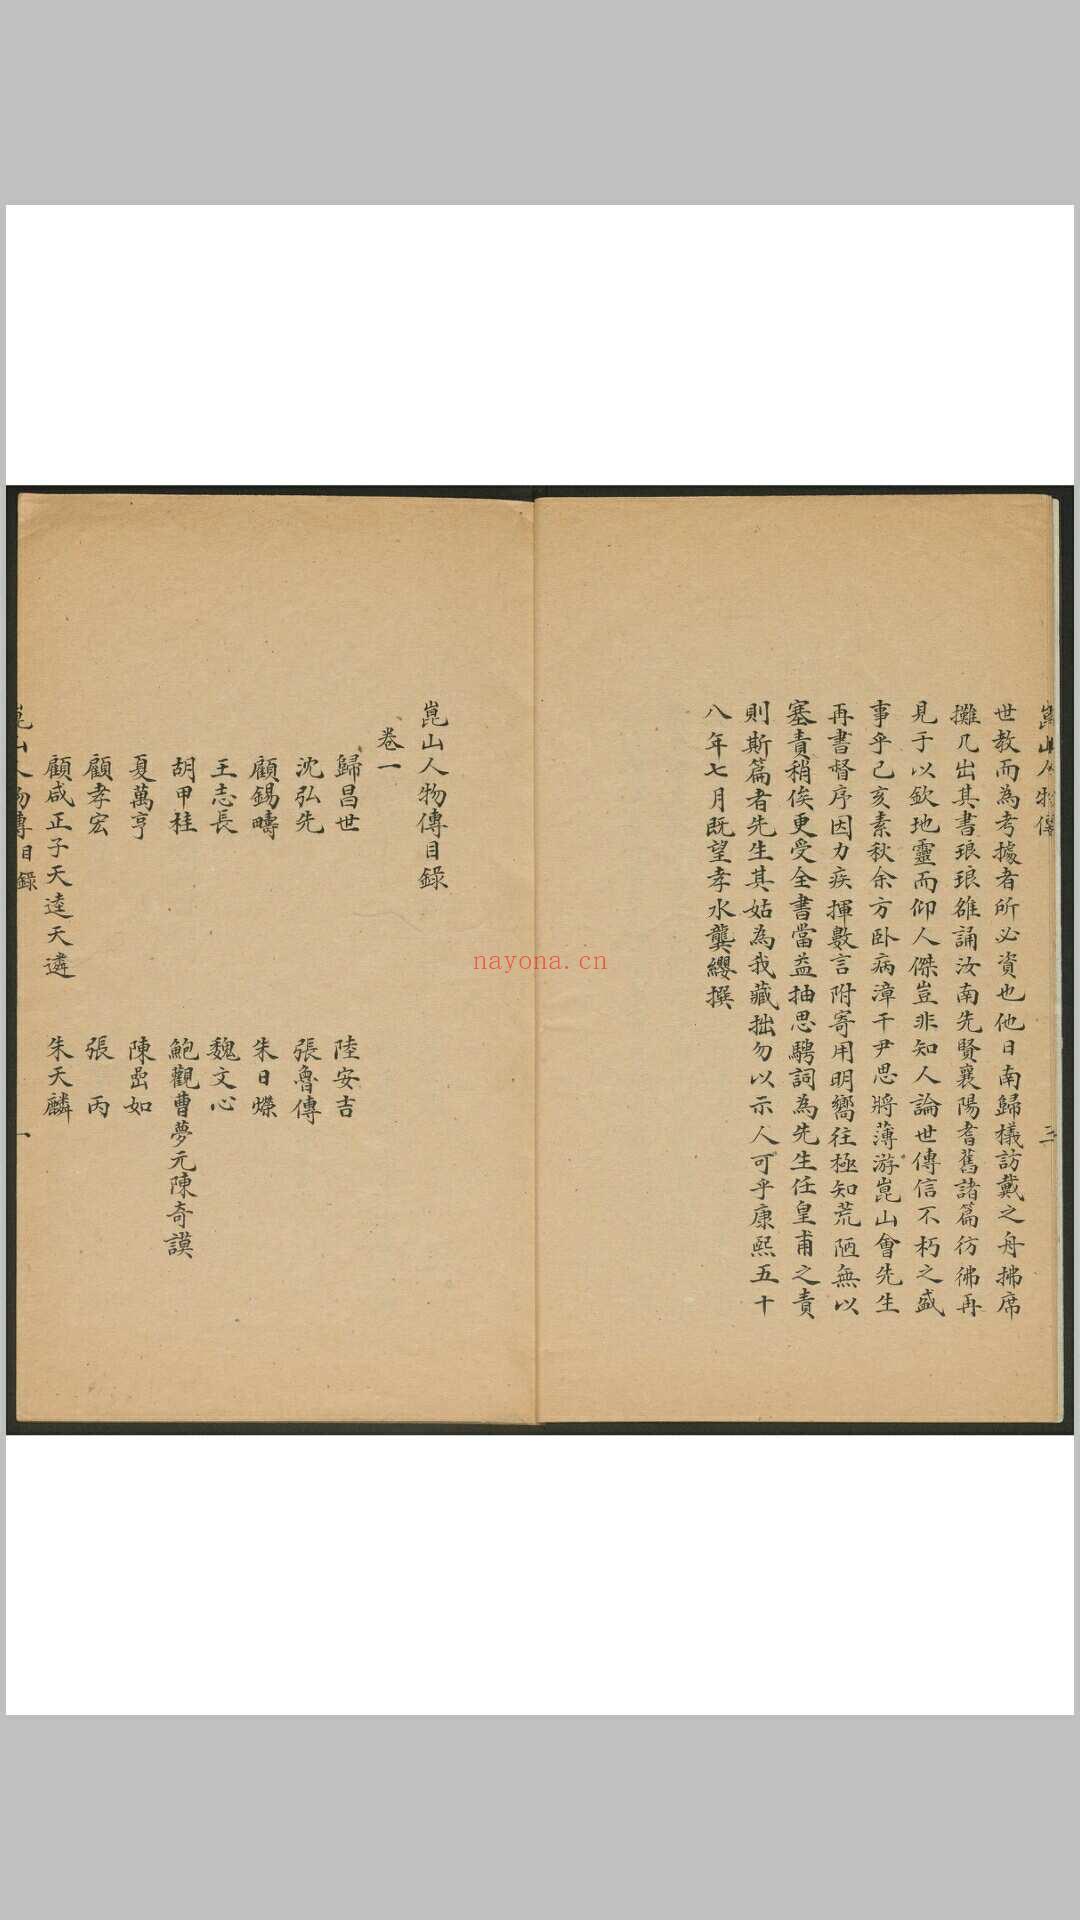 崑山人物傳
三
世教而為考據者所必資也他日南歸檥訪戴之舟拂席
攤几出其書琅琅雒誦汝南先賢襄陽耆舊諸篇彷彿再
見于以欽地靈而仰人傑豈非知人論世傳信不朽之盛
事乎己亥素秋余方卧病漳干尹思將薄游崑山會先生
再書督序因力疾揮數言附寄用明嚮往極知荒陋無以
塞責稍俟更受全書當益抽思騁詞為先生任皇甫之責
則斯篇者先生其姑為我藏拙勿以示人可乎康熙五十
八年七月既望孝水龔纓撰
崑山人物傳目錄
卷一
歸昌世 陸安吉
沈弘先 張魯傳
顧錫疇 朱日爃
王志長 魏文心
胡甲桂 鮑觀曹夢元陳奇謨
夏萬亨 陳嵒如
顧孝宏 張丙
顧咸正子天逵天遴 朱天麟
崑山人物傳目錄
一
nayona.cn